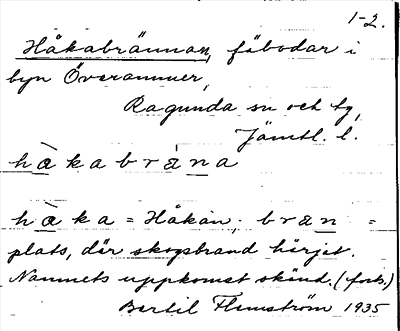 1-2.
Håkabrännan, fäbodar i
byn Överammer,
Ragunda sn och tg,
Jämtl. l.
hàkabrána
hàka = Håkan; brän =
plats, där skogsbrand härjat.
Namnets uppkomst okänd. (forts.)
Bertil Flemström 1935